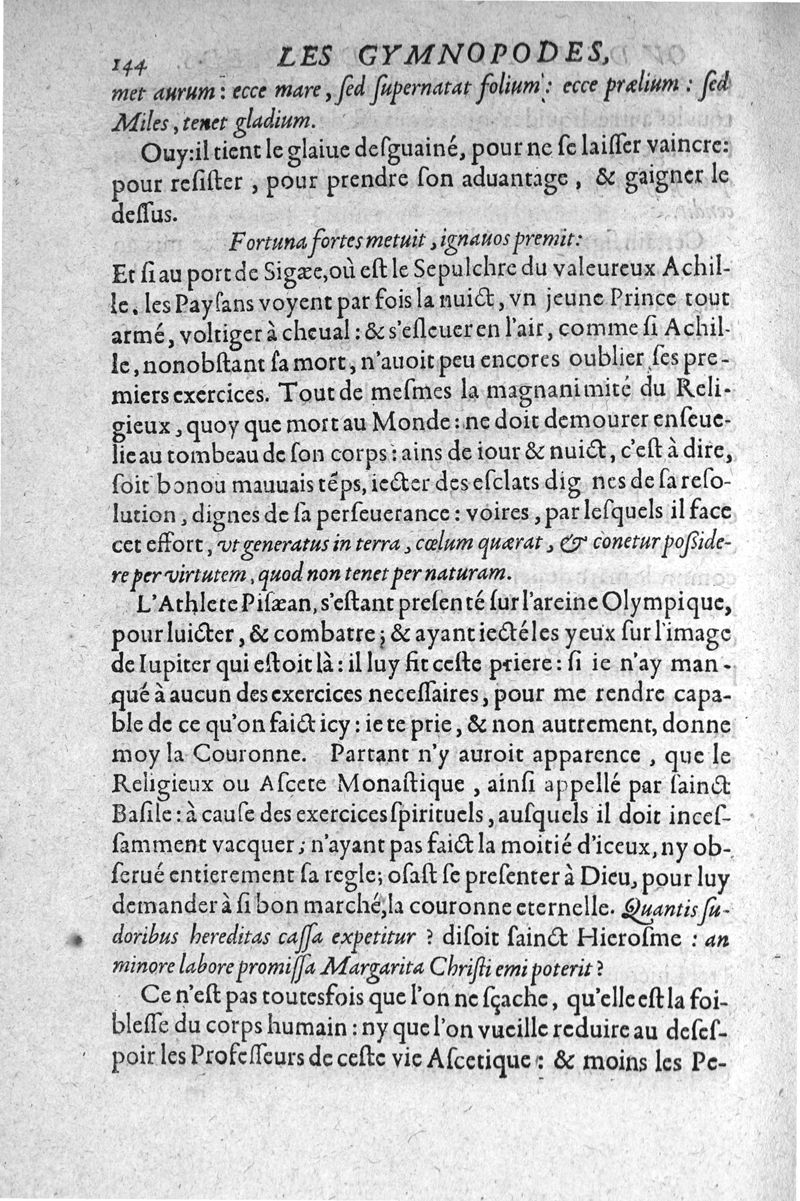 144 LES GYMNOPODES,
met aurum : ecce mare, ſed ſupernatat folium : ecce prælium : ſed
Miles, tenet gladium.
Ouy:il tient le glaiue deſguainé, pour ne ſe laiſſer vaincre:
pour reſiſter, pour prendre ſon aduantage, & gaigner le
deſſus.
Fortuna fortes metuit, ignauos premit:
Et ſi au port de Sigæe, où eſt le Sepulchre du valeureux Achil-
le. les Payſans voyent par fois la nuict, vn jeune Prince tout
armé, voltiger à cheual : & s'eſleuer en l'air, comme ſi Achil-
le, nonobſtant ſa mort, n'auoit peu encores oublier ſes pre-
miers exercices. Tout de meſmes la magnanimité du Reli-
gieux, quoy que mort au Monde : ne doit demourer enſeue-
lie au tombeau de ſon corps : ains de iour & nuict, c'eſt à dire,
ſoit bon ou mauuais tẽps, iecter des eſclats dig nes de ſa reſo-
lution, dignes de ſa perſeuerance : voires, par leſquels il face
cet effort, vt generatus in terra, cœlum quærat, & conetur poſſide-
re per virtutem, quod non tenet per naturam.
L'Athlete Piſæan, s'eſtant preſenté ſur l'areine Olympique,
pour luicter, & combatre ; & ayant iecté les yeux ſur l'image
de Iupiter qui eſtoit là : il luy fit ceſte priere : ſi ie n'ay man-
qué à aucun des exercices neceſſaires, pour me rendre capa-
ble de ce qu'on faict icy : ie te prie, & non autrement, donne
moy la Couronne. Partant n'y auroit apparence, que le
Religieux ou Aſcete Monaſtique, ainſi appellé par ſainct
Baſile : à cauſe des exercices ſpirituels, auſquels il doit inceſ-
ſamment vacquer ; n'ayant pas faict la moitié d'iceux, ny ob-
ſerué entierement ſa regle; oſaſt ſe preſenter à Dieu, pour luy
demander à ſi bon marché, la couronne eternelle. Quantis ſu-
doribus hereditas caſſa expetitur ? diſoit ſainct Hieroſme : an
minore labore promiſſa Margarita Chriſti emi poterit ?
Ce n'eſt pas toutesfois que l'on ne ſçache, qu'elle eſt la foi-
bleſſe du corps humain : ny que l'on vueille reduire au deſeſ-
poir les Profeſſeurs de ceſte vie Aſcetique : & moins les Pe-